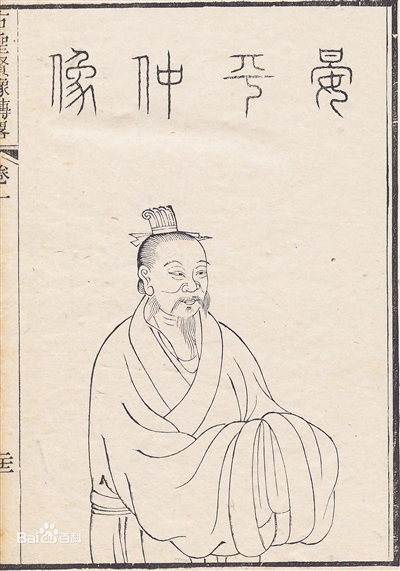 晏平仲像
古聖賢像傳畧
卷一
Bai百科